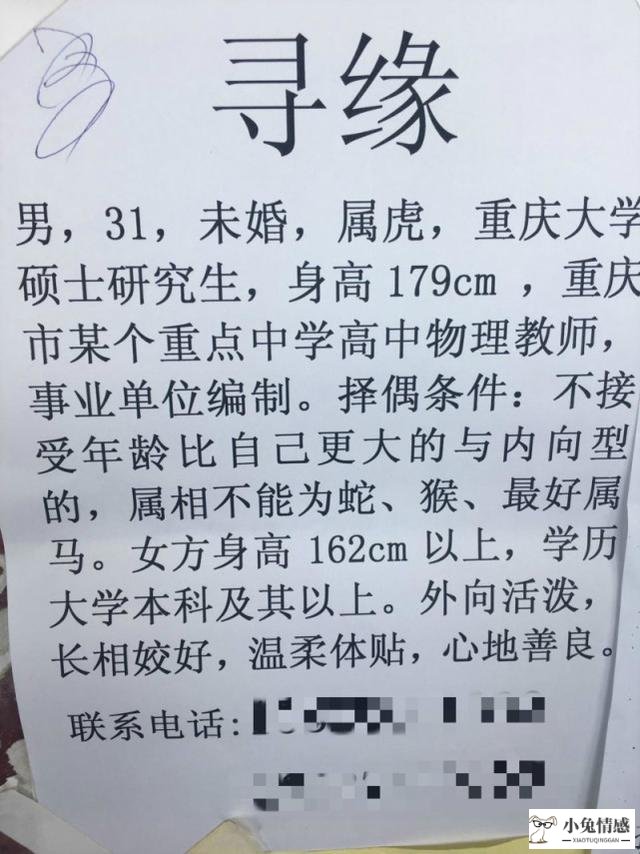 寻缘
男，31，未婚，属虎，重庆大学
硕士研究生，身高179cm，重庆
市某个重点中学高中物理教师，
事业单位编制。择偶条件：不接
受年龄比自己更大的与内向型
的，属相不能为蛇、猴、最好属
马。女方身高162cm以上，学历
大学本科及其以上。外向活泼，
长相姣好，温柔体贴，心地善良。
联系电话：
小兔情感
XIAOTUQINGGAN